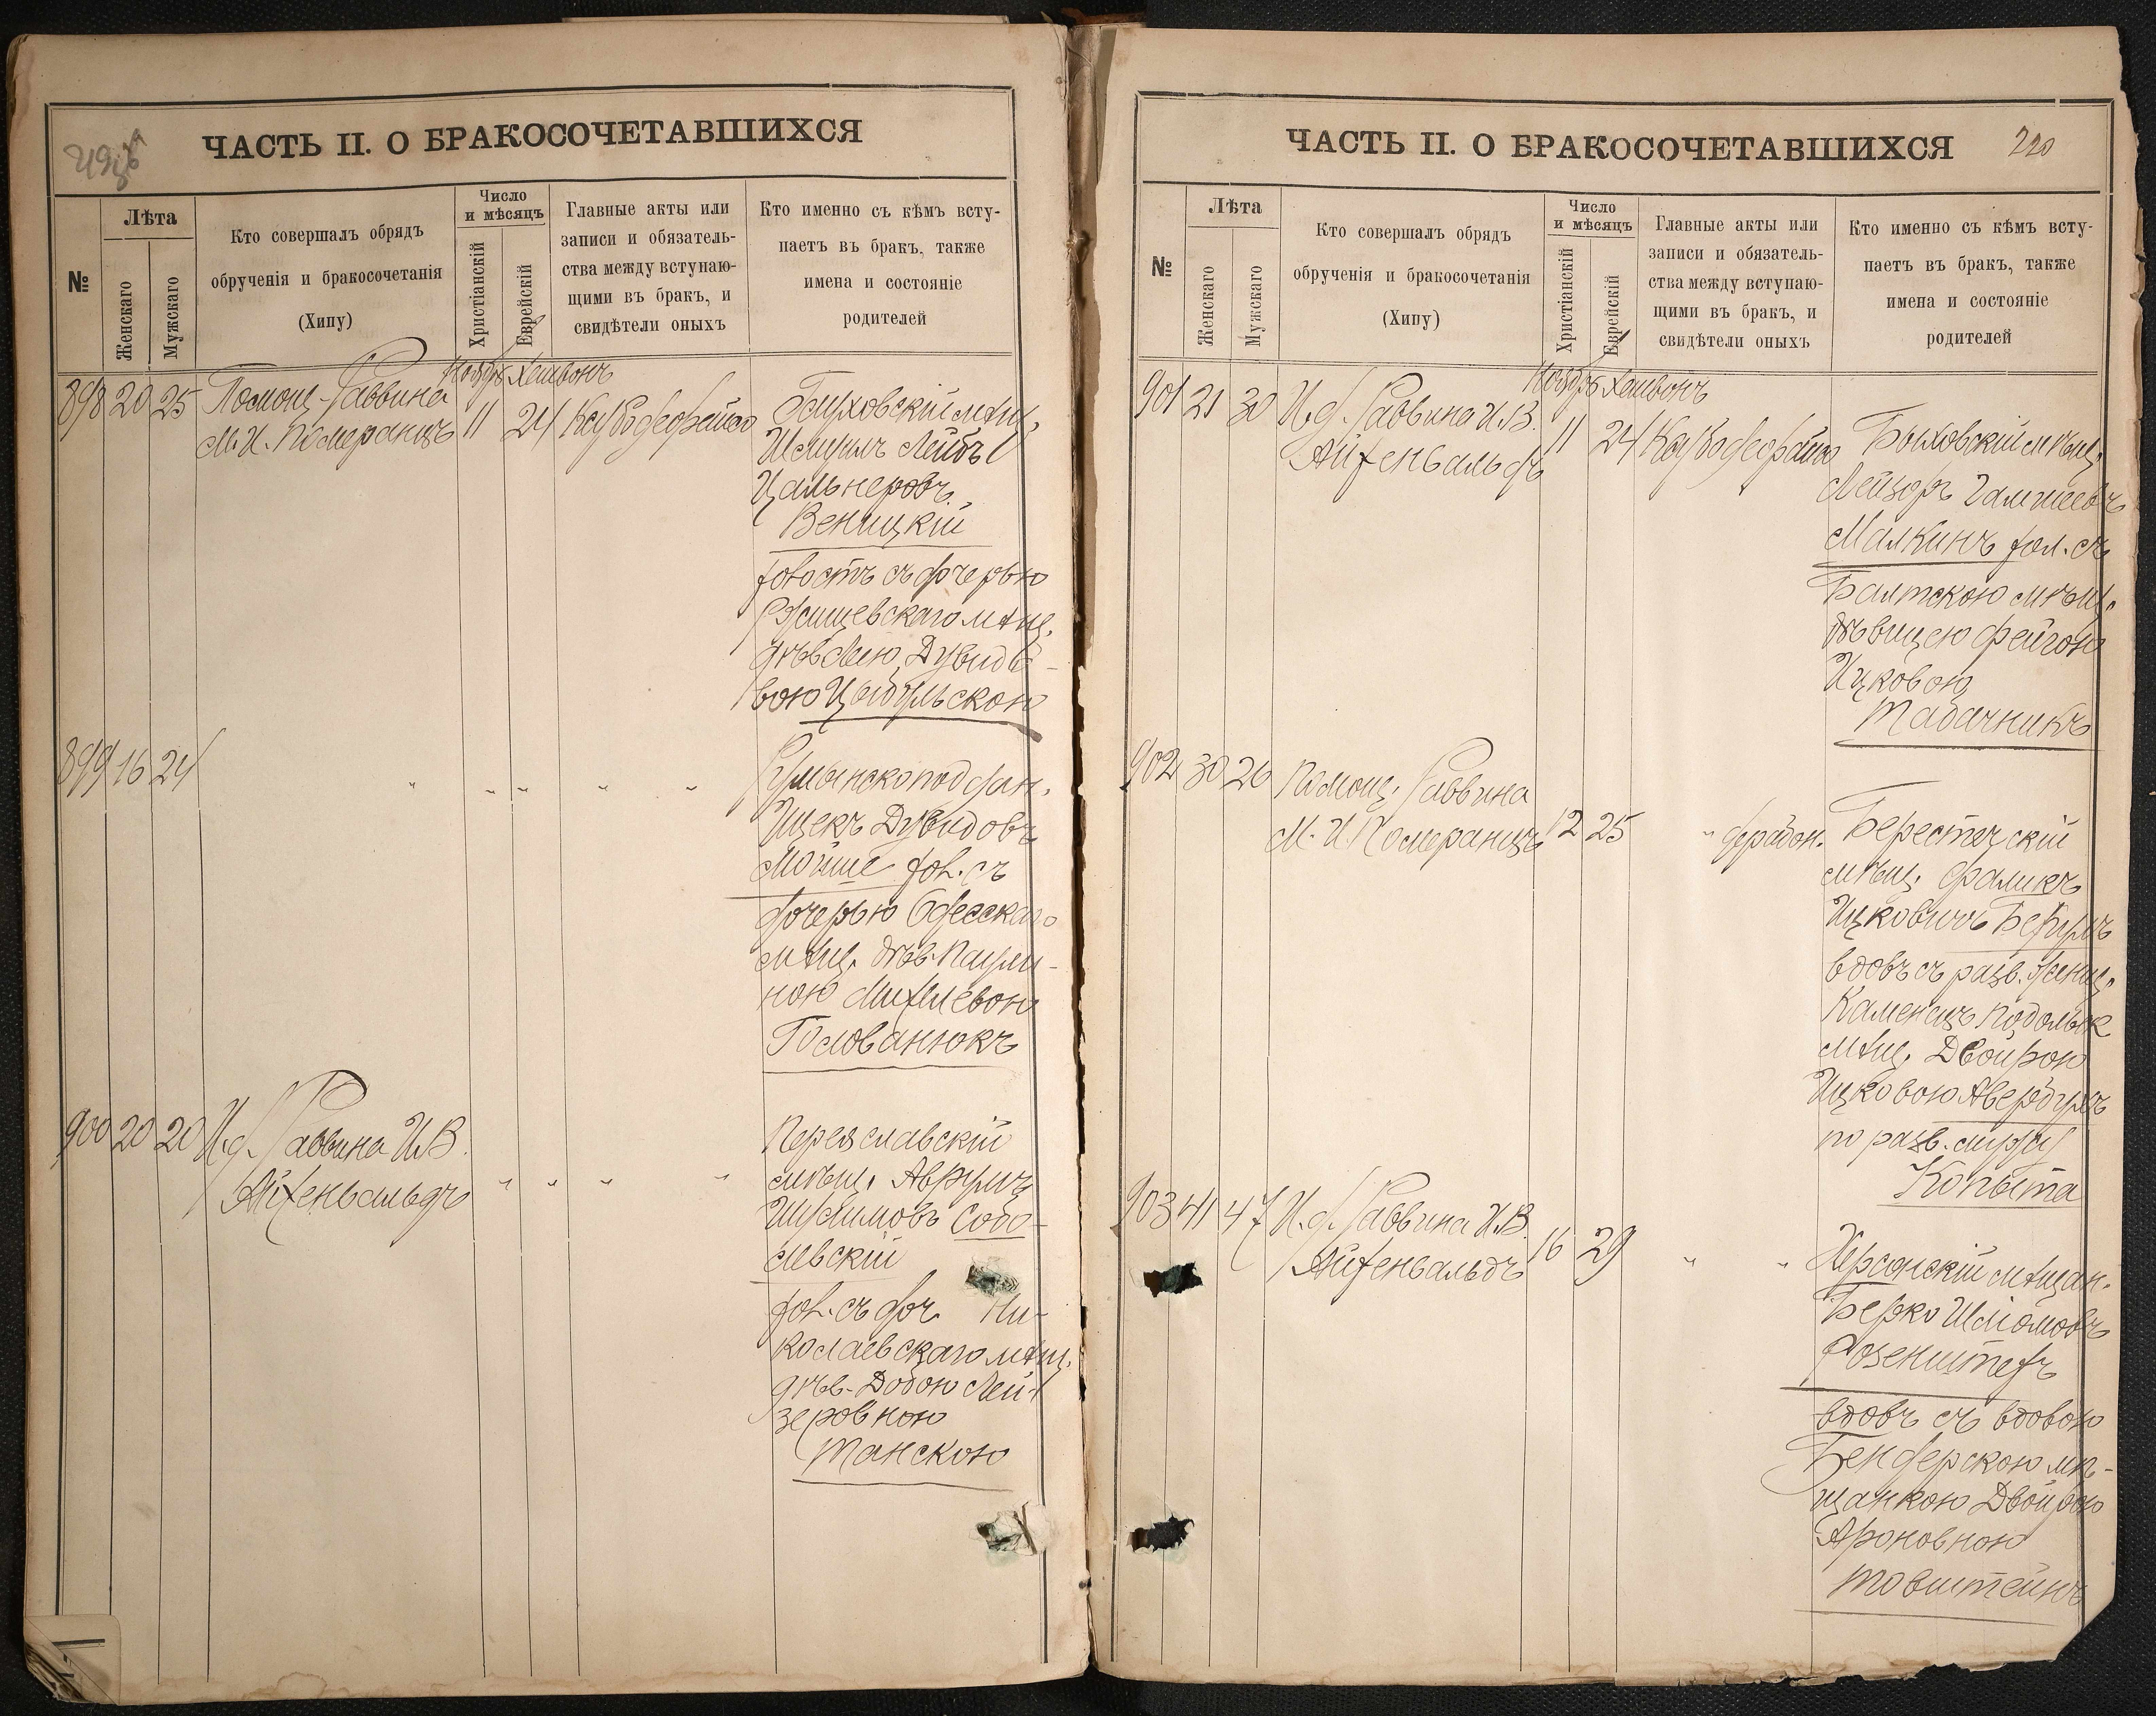 ЧАСТЬ II. О БРАКОСОЧЕТАВШИХСЯ
№
Лѣта
Женскаго
Мужскаго
Кто совершалъ обрядъ
обрученія и бракосочетанія
(Хипу)
Число
и мѣсяцъ
Христіанскій
Еврейскій
Главные акты или
записи и обязатель-
ства между вступаю-
щими въ бракъ, и
свидѣтели оныхъ
Кто именно съ кѣмъ всту-
паетъ въ бракъ, также
имена и состояніе
родителей
Ноябрь Хешвонъ
898 20 25 Помощ. Раввина
М. И. Померанцъ 11 24
мѣщ.
Шмуилъ Лейбъ
Веницкій
холостъ съ дочерью
Ржищевскаго мѣщ.
Дувидо-
вою Цыбульскою
899 16 24 " " " " "
Румынскоподдан.
Ицекъ Дувидовъ
Мойше хол. съ
дочерью Одесскаго
мѣщ. дѣв. Паули-
ною Михелевою
Голованюкъ
900 20 20 И. д. Раввина И. В.
Айхенвальдъ " " " "
Переяславскій
мѣщ. Аврумъ
Собо-
левскій
хол. съ доч. Ни-
колаевскаго мѣщ.
дѣв. Добою Лей-
зеровною
Танскою
ЧАСТЬ II. О БРАКОСОЧЕТАВШИХСЯ 220
№
Лѣта
Женскаго
Мужскаго
Кто совершалъ обрядъ
обрученія и бракосочетанія
(Хипу)
Число
и мѣсяцъ
Христіанскій
Еврейскій
Главные акты или
записи и обязатель-
ства между вступаю-
щими въ бракъ, и
свидѣтели оныхъ
Кто именно съ кѣмъ всту-
паетъ въ бракъ, также
имена и состояніе
родителей
Ноябрь Хешвонъ
901 21 30 И. д. Раввина И. В.
Айхенвальдъ 11 24
Быховскій мѣщ.
Лейзеръ
Малкинъ хол. съ
Балтскою мѣщ.
дѣвицею Фейгою
Ицковою
Табачникъ
902 30 26 Помощ. Раввина
М. И. Померанцъ 12 25 "
Берестечскій
мѣщ. Фаликъ
Ицковичъ
вдовъ съ разв.
Каменецъ Подольск
мѣщ. Двойрою
Ицковою Авербухъ
по разв. мужу
Копыта
903 41 47 И. д. Раввина И. В.
Айхенвальдъ 16 29 " "
Херсонскій мѣщан.
Берко Шліомовъ
вдовъ съ вдовою
Бендерскою мѣ-
щанкою Двойрою
Ароновною
Товштейнъ